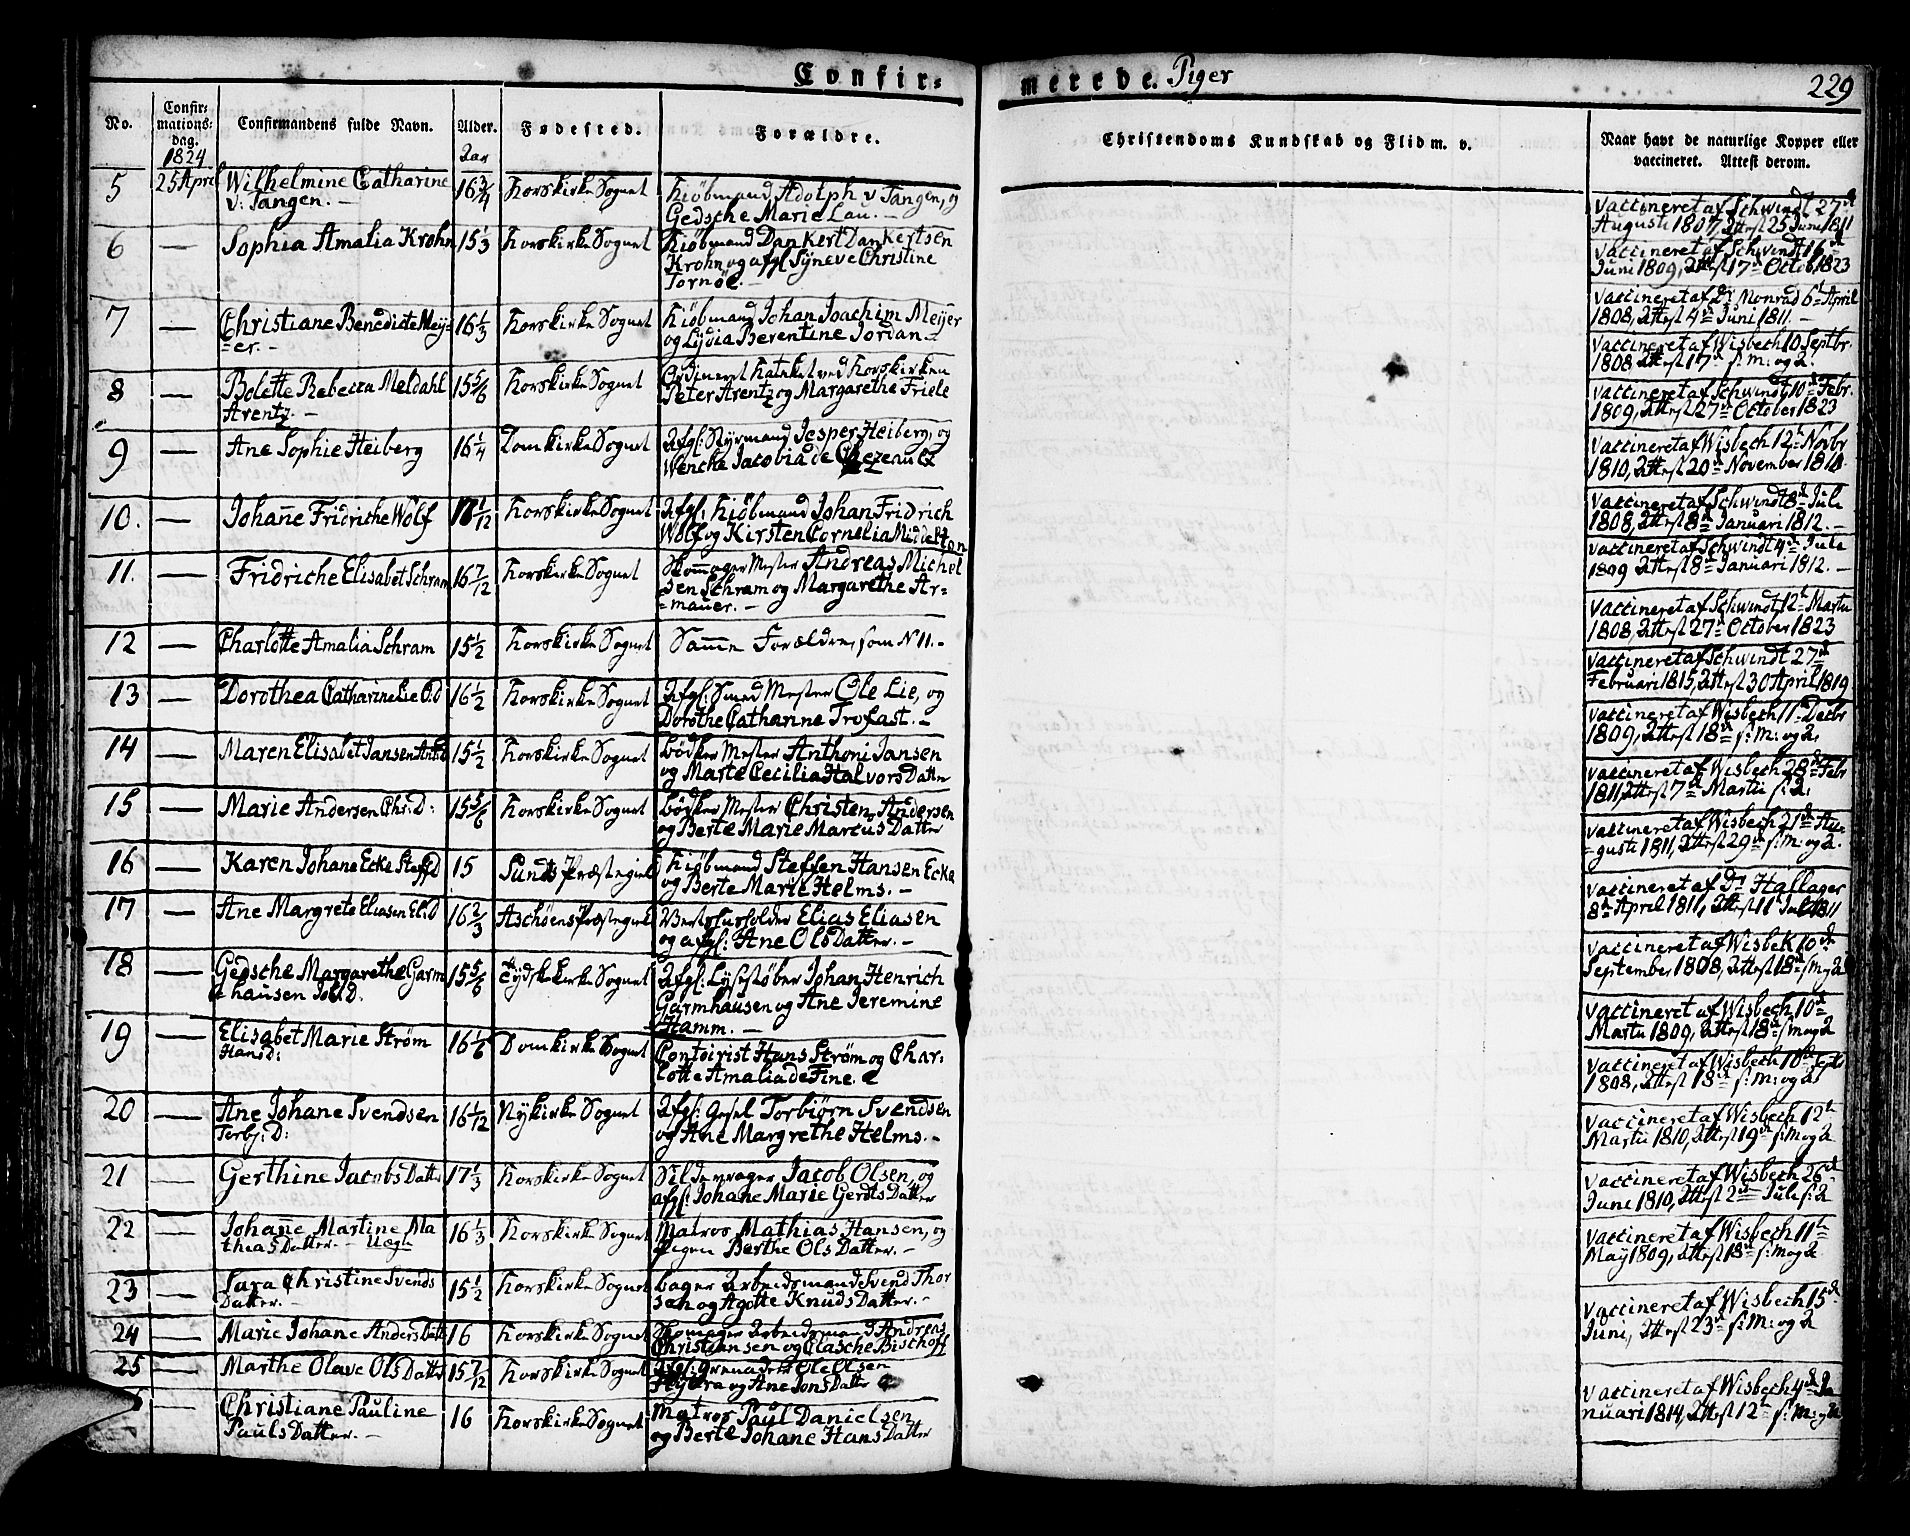 Confir=
merede. Piger
229
No.
Confir=
mations=
dag.
1824
Confirmandens fulde Navn.
Alder.
Aar
Fødested.
Forældre.
Christendoms Kundskab og Flid m. v.
Naar havt de naturlige Kopper eller
vaccineret. Attest derom.
5 25 April Wilhelmine Catharine 16 3/4 Korskirke Sognet Kiøbmand Adolph v Tangen, og
v: Tangen. - Gedsche Marie Lau. -
Vaccineret af Schwindt 27de
Augusti 1807, Attest 25 Juni 1811
6 — Sophia Amalia Krohn 15 1/3 Korskirke Sognet Kiøbmand Dankert Dankertsen
Krohn og afgl Syneve Christine
Tornöe. -
Vaccineret af Schwindt 16de
Juni 1809, Attest 17de Octob. 1823
7 — Christiane Benedicte Mey= 16 1/3 Korskirke Sognet Kiøbmand Johan Joachim Meijer
=er. - og Lydia Berentine Jordan -
Vaccineret af Dr Monrad 6t April
1808, Attest 4de Juni 1811. -
8 — Bolette Rebecca Meldahl 15 5/6 Korskirke Sognet Ordineret Kateket ved Korskirken
Arentz. - Peter Arentz og Margarethe Friele
Vaccineret af Wisbech 10 Septbr.
1808 Attest 17de s: M: og A
9 — Ane Sophie Heiberg 16 1/4 Domkirke Sognet Afgl: Styrmand Jesper Heiberg, og
Wenche Jacobia de Chezeaulx
Vaccineret af Schwindt 10de Febr.
1809, Attest 27de October 1823
10. — Johañe Fridriche Wolf Korskirke Sognet Afgl: Kiøbmand Johan Fridrich
Wolf og Kirsten Cornelia Middelton
Vaccineret af Wisbech 12te Novbr
1810, Attest 20de November 1810.
11. — Fridriche Elisabet Schram 16 7/12 Korskirke Sognet Skom̃ager Mester Andreas Michel
sen Schram og Margarethe Ar=
=mauer. -
Vaccineret af Schwindt 8de Jule
1808, Attest 8de Januari 1812. -
12 — Charlotte Amalia Schram 15 1/2 Korskirke Sognet Sam̃e Forældre, som N 11. -
Vaccineret af Schwindt 4de Jule
1809 Attest 8de Januari 1812. -
13 — Dorothea Catharine Lie O:D 16 1/2 Korskirke Sognet Afgl: Smed Mester Ole Lie, og
Dorothe Catharine Trofast. -
Vaccineret af Schwindt 12te Martii
1808, Attest 27de October 1823
14 — Maren Elisabet Jansen Anth:D 15 1/2 Korskirke Sognet Bødker Mester Anthoni Jansen
og Marte Cecilia Halvors Datter
Vaccineret af Schwindt 27de
Februari 1815, Attest 30 April 1819.
15 — Marie Andersen Chr: D: 15 5/6 Korskirke Sognet Bødker Mester Christen Andersen
og Berte Marie Marcus Datter
Vaccineret af Wisbech 11 Decbr
1809, Attest 18de s: M: og A,
16 — Karen Johane Ecke Steff:D 15 Sunds Præstegield Kiøbmand Steffen Hansen Ecke
og Berte Marie Helms. -
Vaccineret af Wisbech 28de Febr
1811, Attest 7de Martii s: A:
17 — Ane Margrete Eliasen El:D 16 2/3 Aschöens Præstegield Vertshusholder Elias Eliasen
og afgl: Ane Ols Datter. -
Vaccineret af Wisbech 21de Au=
=gusti 1811, Attest 29de s: M: og A.
18 — Gedsche Margarethe Garm 15 5/6 Tydskekirke Sognet Afgl: Lysestøber Johan Henrich
hausen Joh:D. Garmhausen og Ane Jeremine
Hamm. -
Vaccineret af Dr Hallager
8de April 1811, Attest 11 Juli 1811
19 — Elisabet Marie Strøm 16 1/6 Domkirke Sognet Contoirist Hans Strøm og Char=
Hans D: lotte Amalia de Fine.
Vaccineret af Wisbek 10de
September 1808, Attest 18de s: M og A
20 — Ane Johane Svendsen 16 1/12 Nykirke Sognet Afgl: Gesel Torbiørn Svendsen
Torbj: D: og Ane Margrethe Helms. -
Vaccineret af Wisbech 10de
Martii 1809, Attest 18de s: M og A
21 — Gerthine Jacobs Datter 17 1/3 Korskirke Sognet Sildevrager Jacob Olsen, og
afgl: Johane Marie Gerdts Datter
Vaccineret af Wisbech 10de Febr
1808, Attest 18de s: M: og A
22 — Johañe Martine Ma 16 1/3 Korskirke Sognet Matros Mathias Hansen, og
thias Datter. - Uegte Pigen Berthe Ols Datter. -
Vaccineret af Wisbech 12te
Martii 1810, Attest 19de s: M og A
23 — Sara Christine Svends 15 1/2 Korskirke Sognet Bager Arbeidsmand Svend Thor
Datter. - sen og Agotte Knuds Datter. -
Vaccineret af Wisbech 26de
Juni 1810, Attest 2den Jule s: A
24 — Marie Johane Anders Datt: 16 Korskirke Sognet Skomager Arbeidsmand Andreas
Christiansen og Elasche Bischoff
Vaccineret af Wisbech 11te
May 1809, Attest 18de s: M og A
25 — Marthe Olave Ols Datter 15 7/12 Korskirke Sognet Afgl: Grenadeer Ole Olsen
Hydra og Ane Jons Datter
Vaccineret af Wisbech 15de
Juni, Attest 23de s: M: og A
— Christiane Pauline 16 Korskirke Sognet Matros Paul Danielsen
Pauls Datter. - og Berte Johane Hans Datter
Vaccineret af Wisbech 4de Ja
nuari 1814, Attest 12te s: M: og A